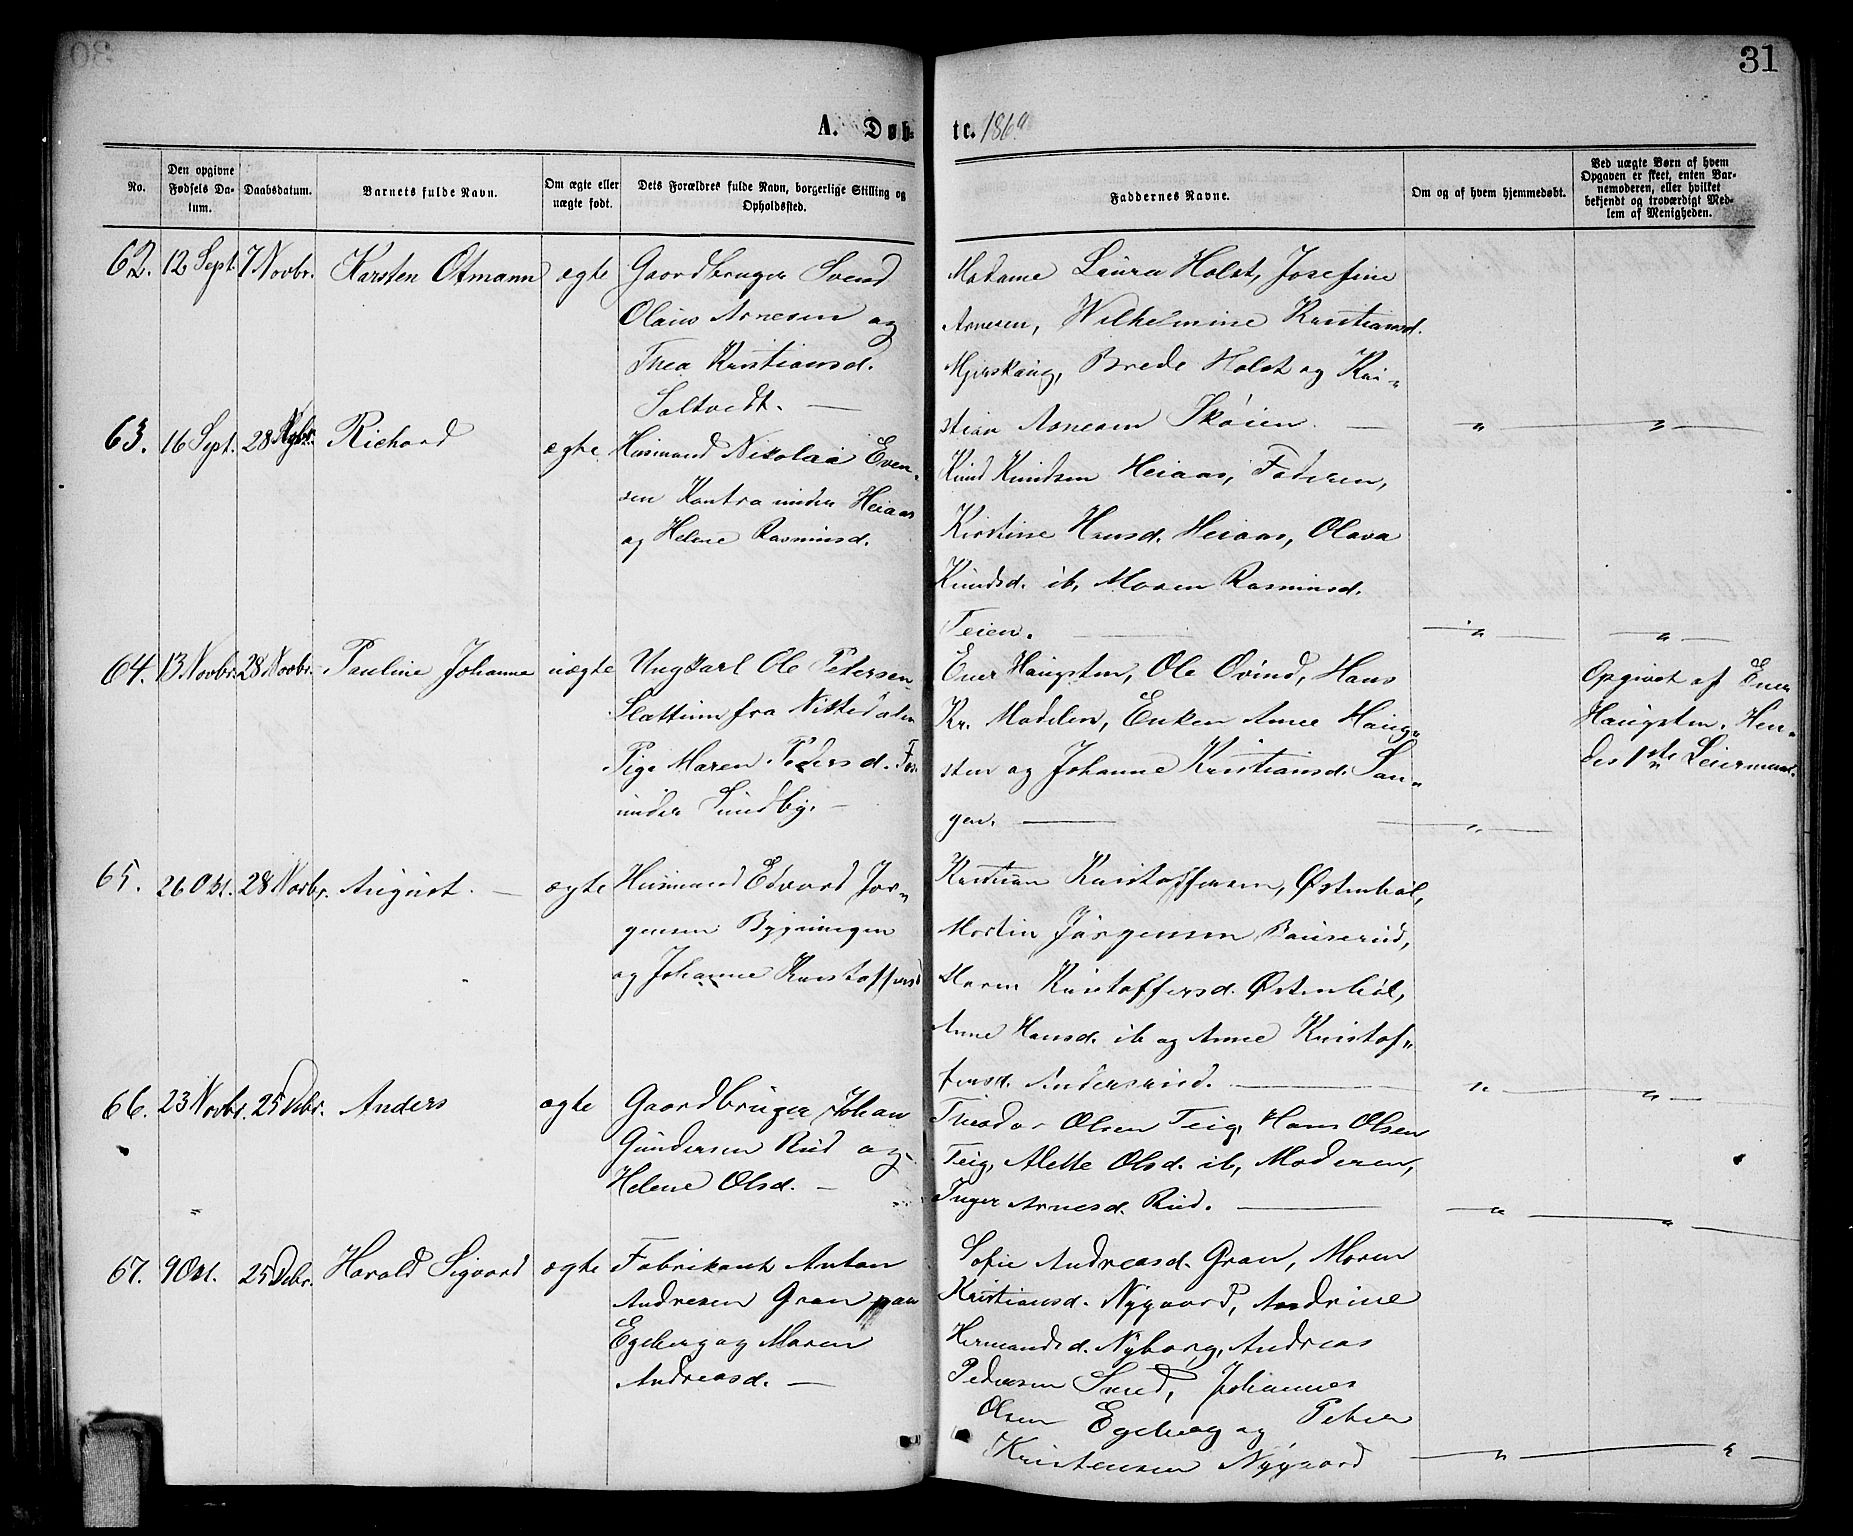 31
A. Døb-
te. 1869
No.
Den opgivne Fødsels Da-
tum.
Daabsdatum.
Barnets fulde Navn.
Om ægte eller
uægte født.
Dets Forældres fulde Navn, borgerlige Stilling og
Opholdssted.
Faddernes Navne.
Om og af hvem hjemmedøbt.
Ved uægte Børn af hvem
Opgaven er skeet, enten Bar-
nemoderen, eller hvilket
bekjendt og troværdigt Med-
lem af Menigheden.
62. 12 Sept. 7 Novbr. Karsten Otmann ægte
Gaardbruger Svend
Olaus Arnesen og
Thea Kristiansd.
Saltvedt. —
Madame Laura Holst, Josefine
Arnesen, Wilhelmine Kristiansd.
Mjerskaug, Brede Holst og Kri-
stian Arnesen Skøien. — „ „
63. 16 Sept. 28 Novbr. Richard ægte
Husmand Nikolai Even-
sen Kantra under Heiaas
og Helene Rasmusd.
Knud Knudsen Heiaas, Faderen,
Kirstine Hansd. Heiaas, Olava
Knudsd. ib, Maren Rasmusd.
Teien. — „ — „ —
64. 13 Novbr. 28 Novbr. Pauline Johanne uægte
Ungkarl Ole Petersen
Slattum fra Nittedalen
Pige Maren Pedersd.
under Sundby. —
Ener Haugsten, Ole Øvind, Hans
Kr. Modelen, Enken Anne Haug-
sten og Johanne Kristiansd. San-
gen. — „ —
Opgivet af Ener
Haugsten. Hen-
des 1ste Leiermaal.
65. 26 Okt. 28 Novbr. August. — ægte
Husmand Edvard Jør-
gensen Bygningen
og Johanne Kristoffersd
Kristian Kristoffersen, Østenbøl,
Martin Jørgensen Bauserud,
Maren Kristoffersd. Østenbøl,
Anne Hansd. ib og Anne Kristof-
fersd. Andersrud. — „ „ —
66. 23 Novbr. 25 Debr. Anders ægte
Gaardbruger Johan
Gundersen Rud og
Helene Olsd. —
Theodor Olsen Teig, Hans Olsen
Teig, Alette Olsd. ib, Moderen,
Inger Arnesd. Rud. — „ — „ —
67. 9 Okt. 25 Debr. Harald Sigvard ægte
Fabrikant Anton
Andresen Gran paa
Egeberg og Maren
Andreasd. —
Sofie Andreasd. Gran, Maren
Kristiansd. Nygaard, Andrine
Hermandsd. Nyborg, Andreas
Pedersen Sned, Johannes
Olsen Egeberg og Peter
Kristensen Nygaard — „ — „ —